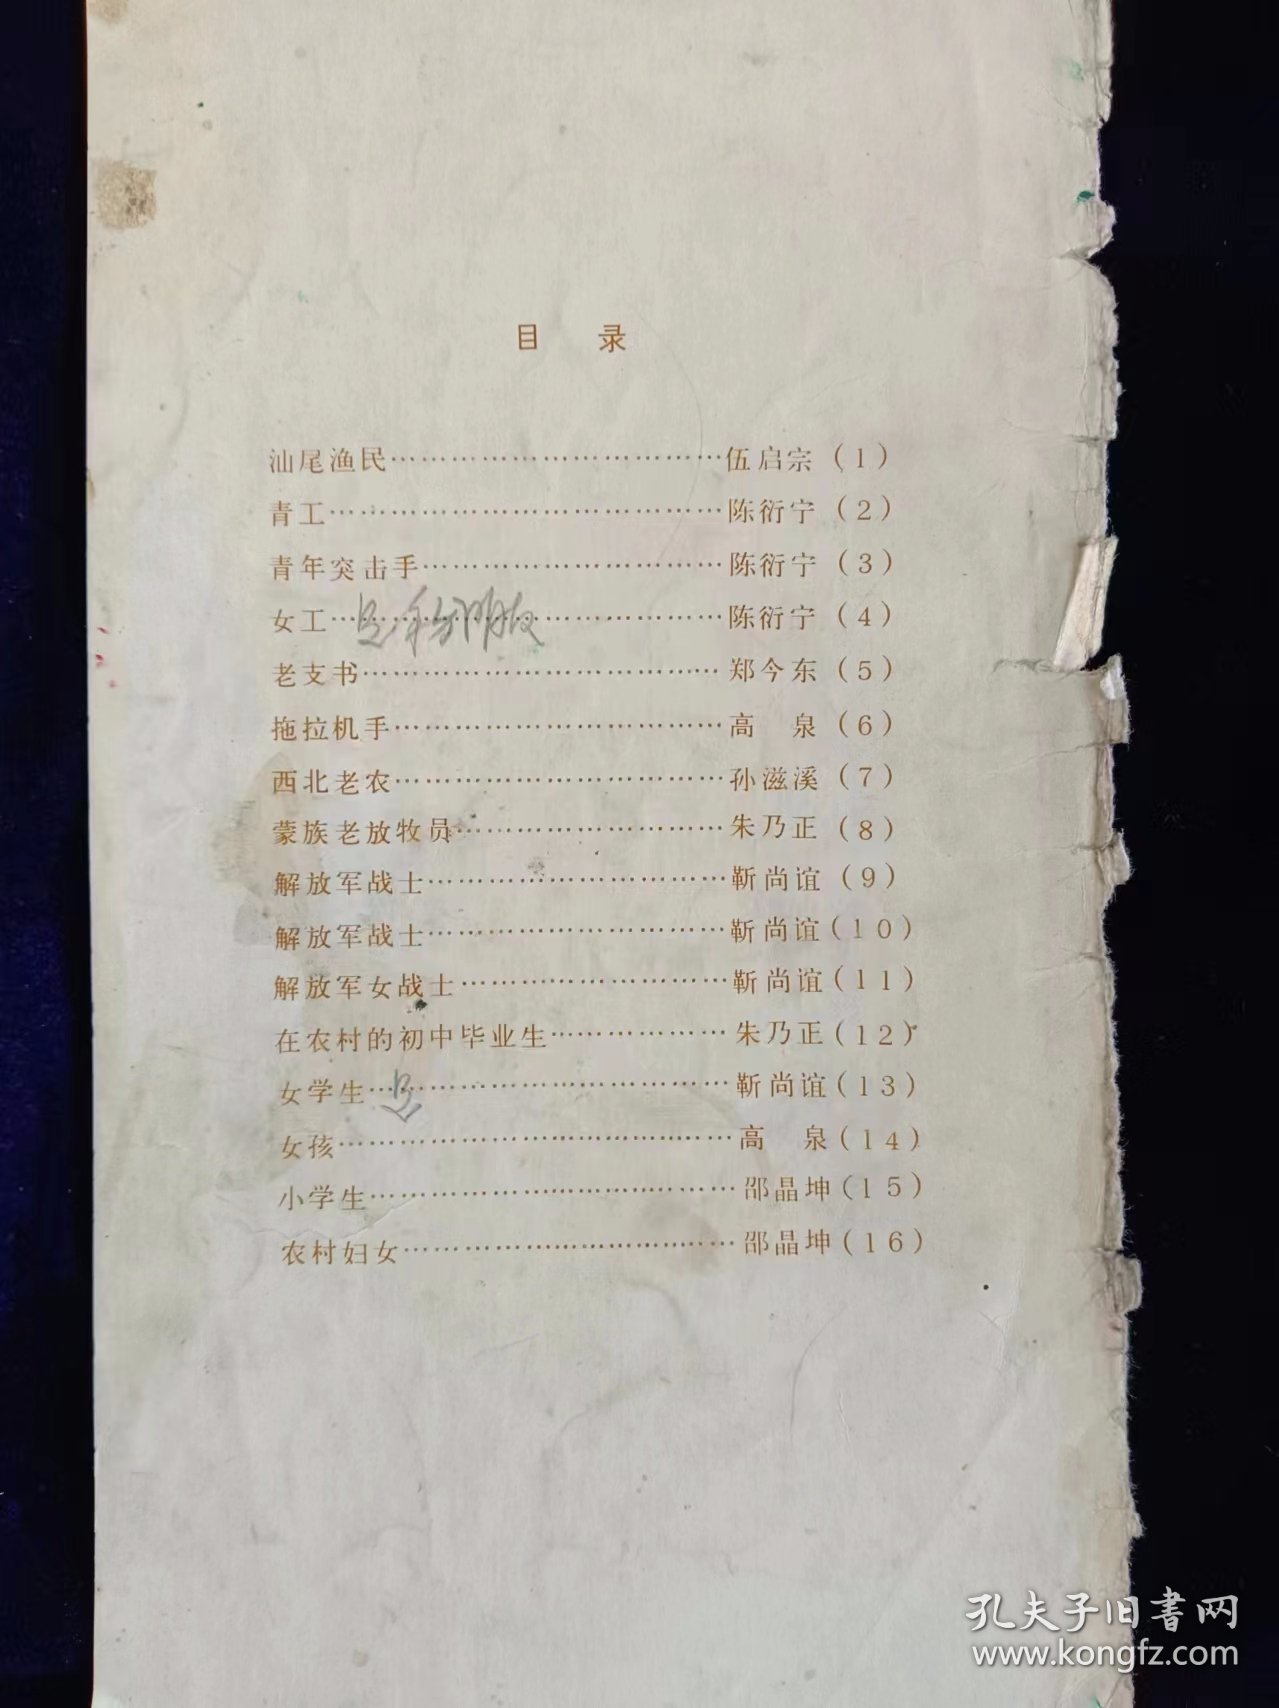 目 录
汕尾渔民………………………………伍启宗（1）
青工……………………………………陈衍宁（2）
青年突击手……………………………陈衍宁（3）
女工……………………………………陈衍宁（4）
老支书…………………………………郑今东（5）
拖拉机手………………………………高 泉（6）
西北老农………………………………孙滋溪（7）
蒙族老放牧员…………………………朱乃正（8）
解放军战士……………………………靳尚谊（9）
解放军战士……………………………靳尚谊（10）
解放军女战士…………………………靳尚谊（11）
在农村的初中毕业生…………………朱乃正（12）
女学生…………………………………靳尚谊（13）
女孩……………………………………高 泉（14）
小学生…………………………………邵晶坤（15）
农村妇女………………………………邵晶坤（16）
孔夫子旧書网
www.kongfz.com